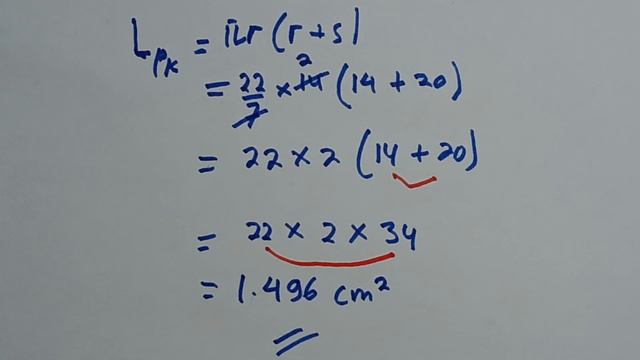 Lpk = πr (r + s)
= 22/7 × 14 2 (14 + 20)
= 22 × 2 (14 + 20)
= 22 × 2 × 34
= 1.496 cm²